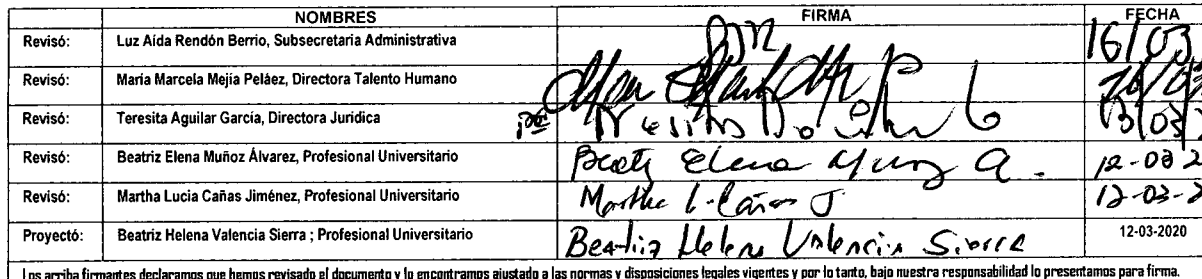 NOMBRES FIRMA FECHA
Revisó: Luz Aída Rendón Berrio, Subsecretaria Administrativa 16/03
Revisó: María Marcela Mejía Peláez, Directora Talento Humano
Revisó: Teresita Aguilar García, Directora Jurídica 13/03/
Revisó: Beatriz Elena Muñoz Álvarez, Profesional Universitario Elena 12-03 2
Revisó: Martha Lucia Cañas Jiménez, Profesional Universitario Martha L. Cañas J 12-03-2
Proyectó: Beatriz Helena Valencia Sierra ; Profesional Universitario Beatriz Helena Valencia Sierra 12-03-2020
Los arriba firmantes declaramos que hemos revisado el documento y lo encontramos ajustado a las normas y disposiciones legales vigentes y por lo tanto, bajo nuestra responsabilidad lo presentamos para firma.